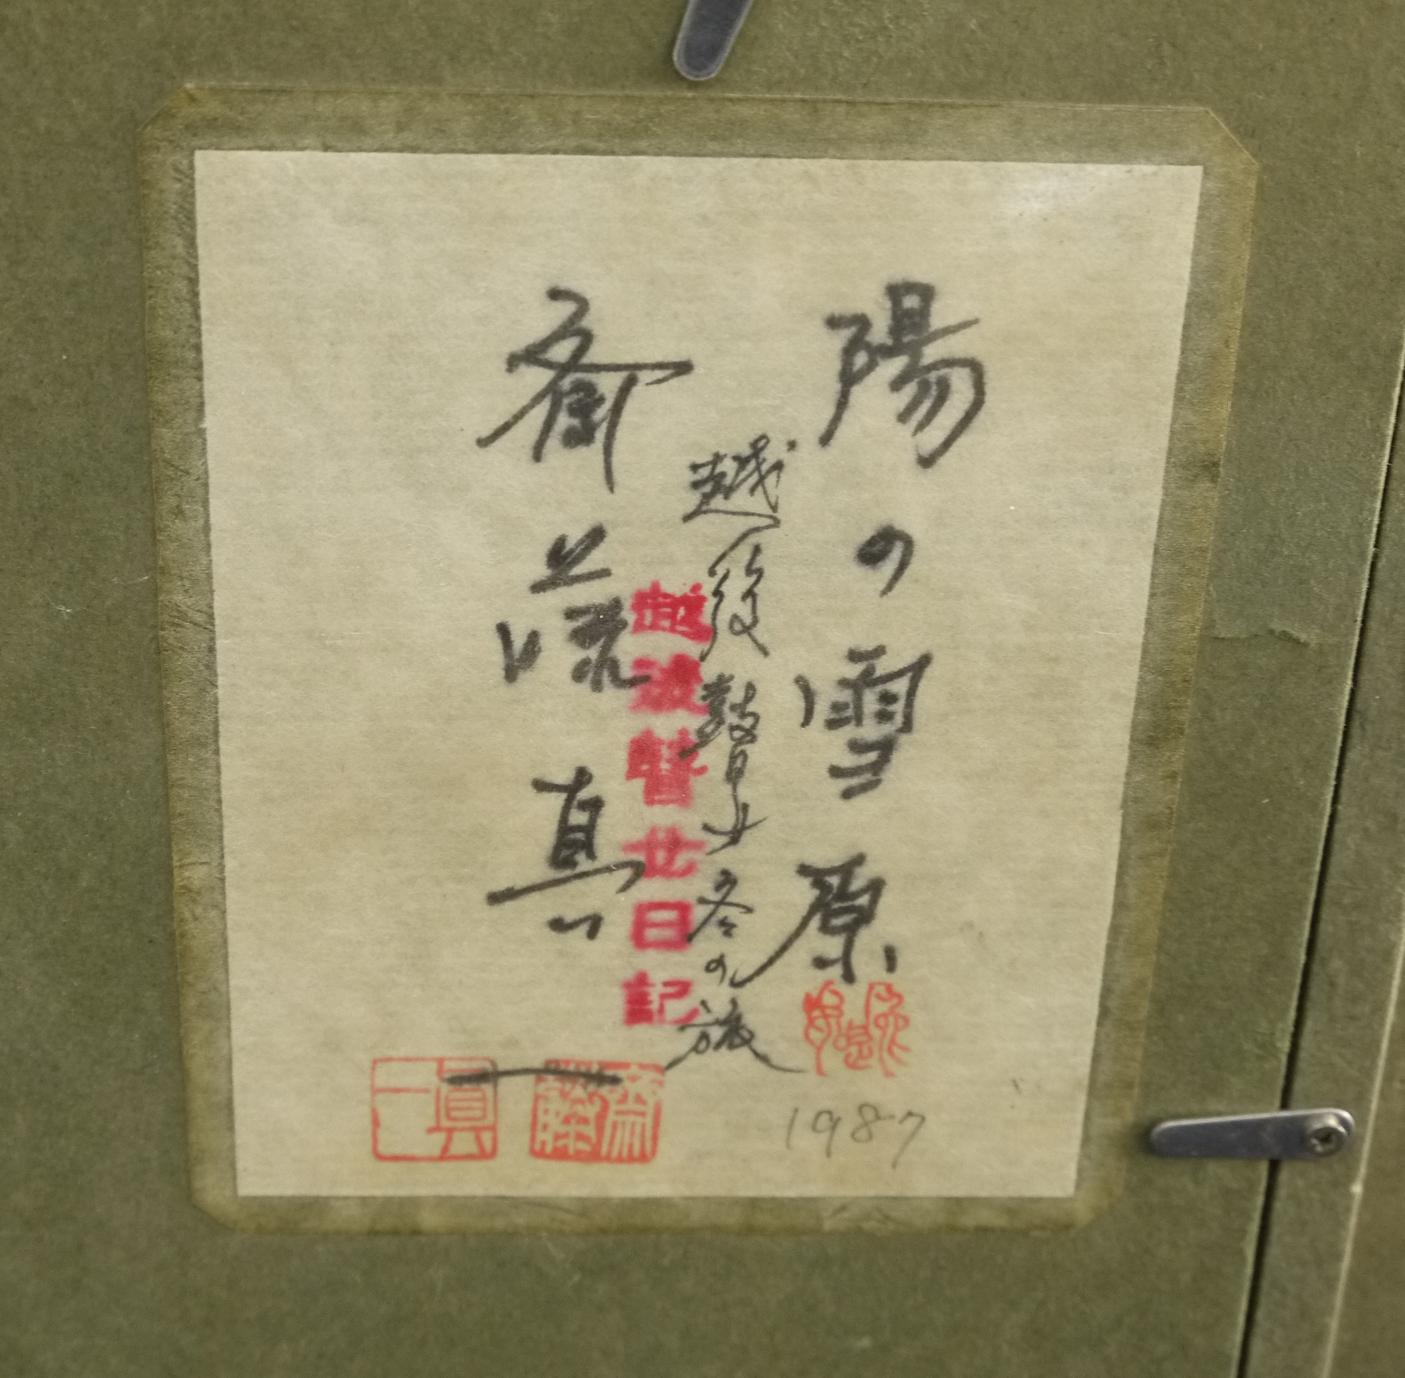 陽の雪原
越後瞽女冬の旅
越後瞽女日記
斎藤真一
1987
齋藤
眞一